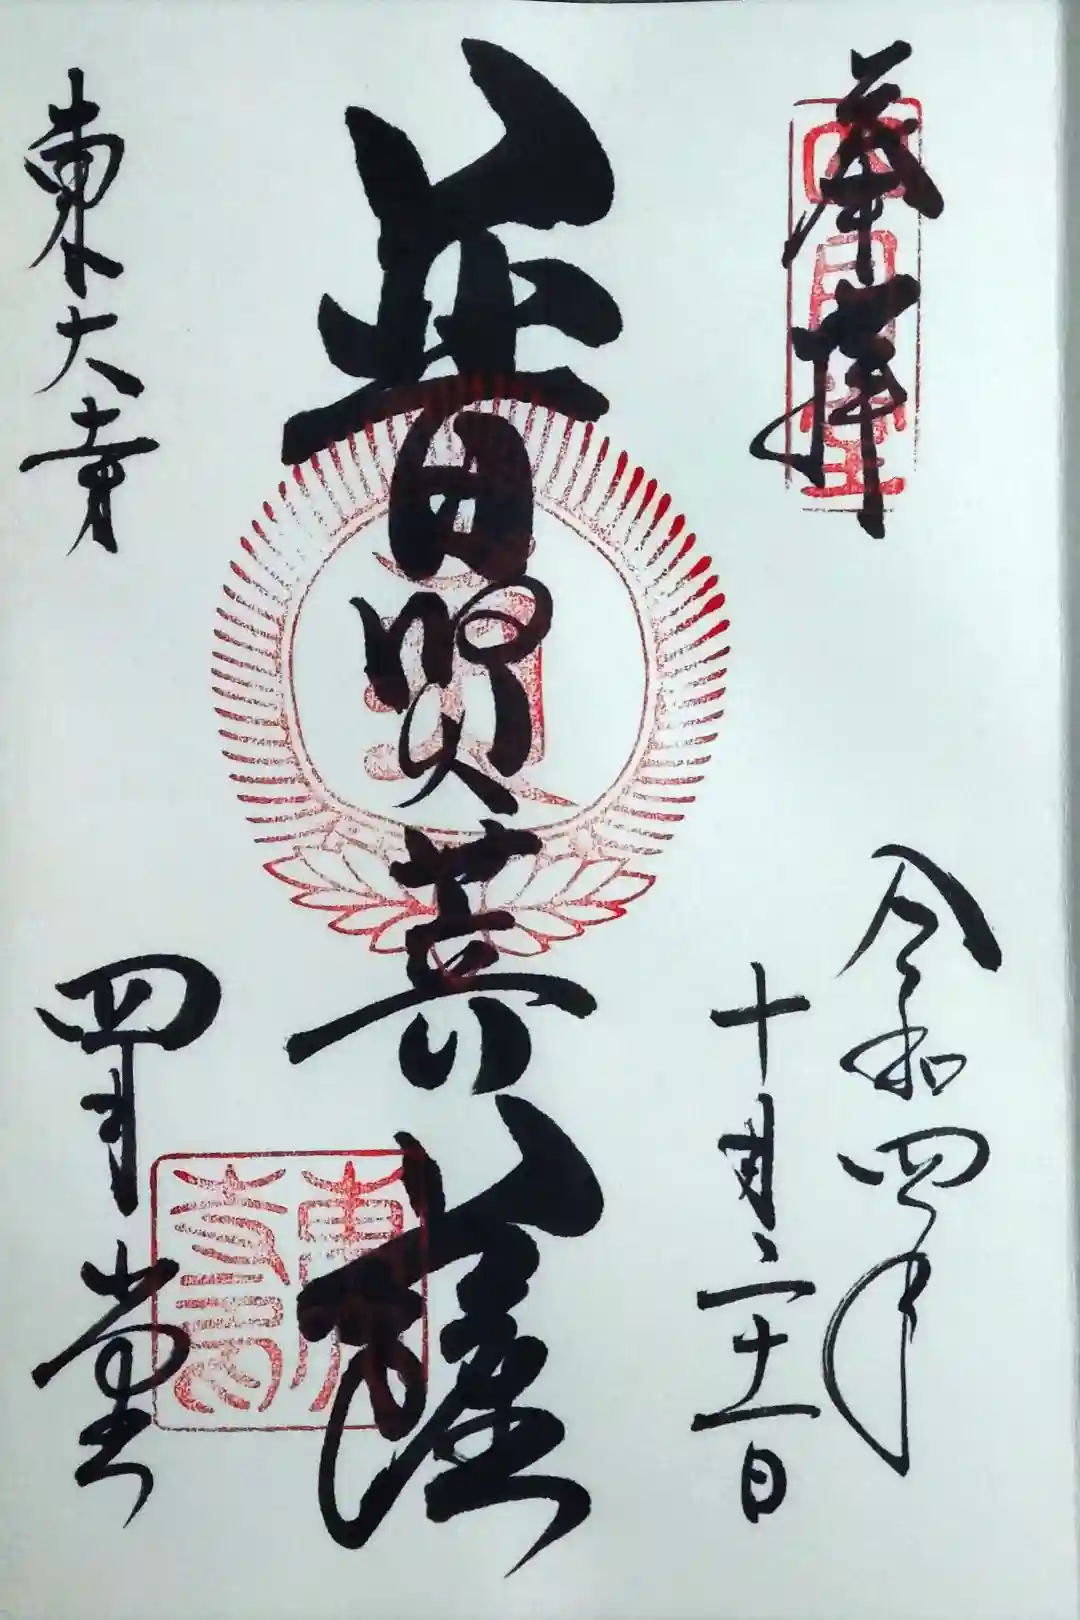 奉拝
四月堂
令和四年
十月二十一日
普賢菩薩
東大寺
四月堂